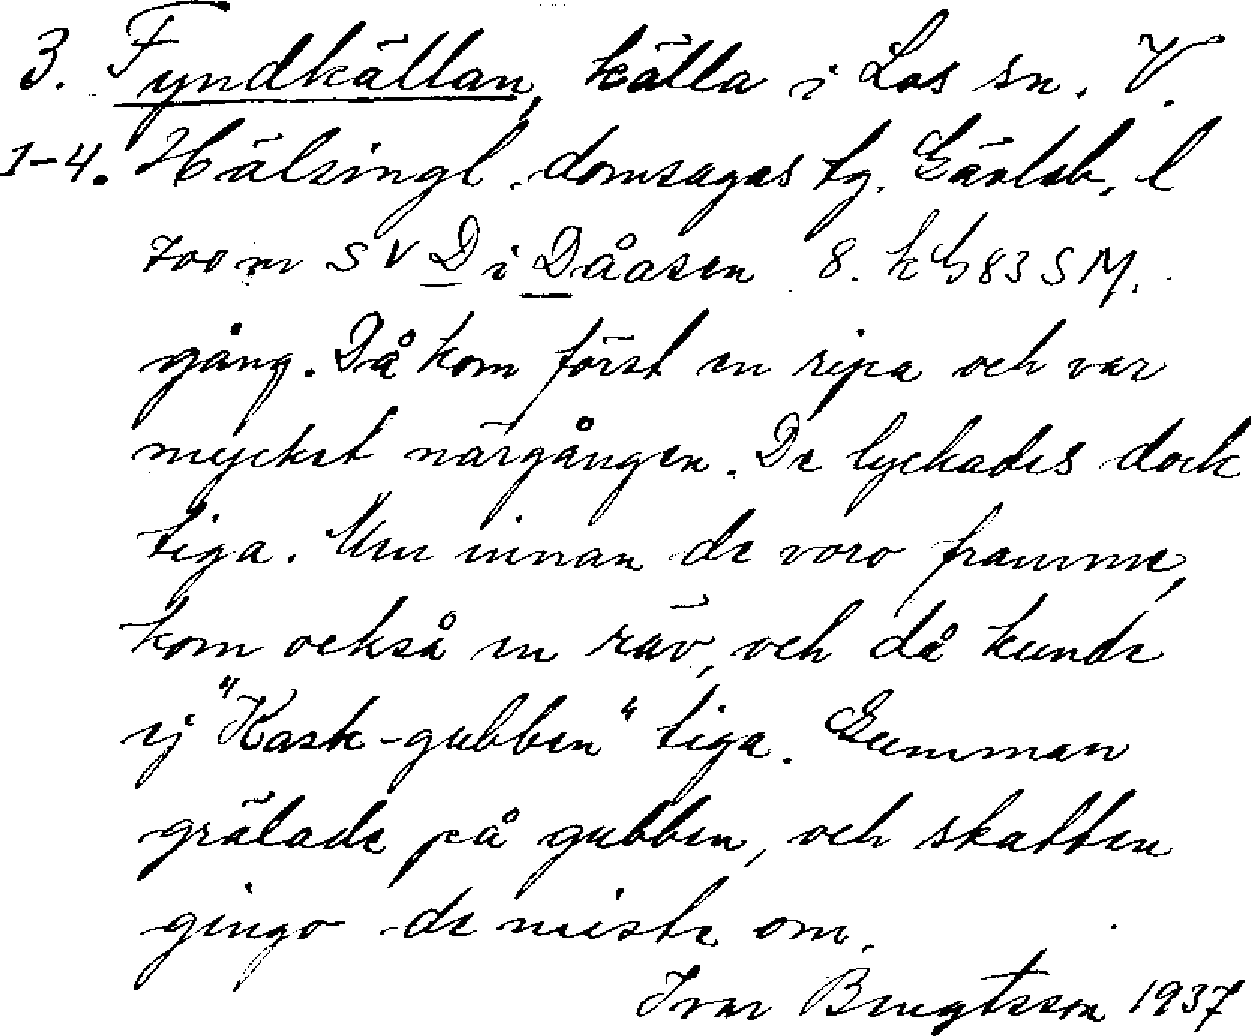 3. Fyndkällan, källa i Los sn. V.
1-4. Hälsingl. domsagas tg. Gävleb. l
700 m SV D i Dåasen 8. kb 83 SM.
gång. Då kom först en ripa och var
mycket närgången. De lyckades dock
tiga. Men innan de voro framme,
kom också en räv, och då kunde
ej "Kask-gubben" tiga. Gumman
grälade på gubben, och skatten
gingo de miste om.
Ivar Bengtsson 1937